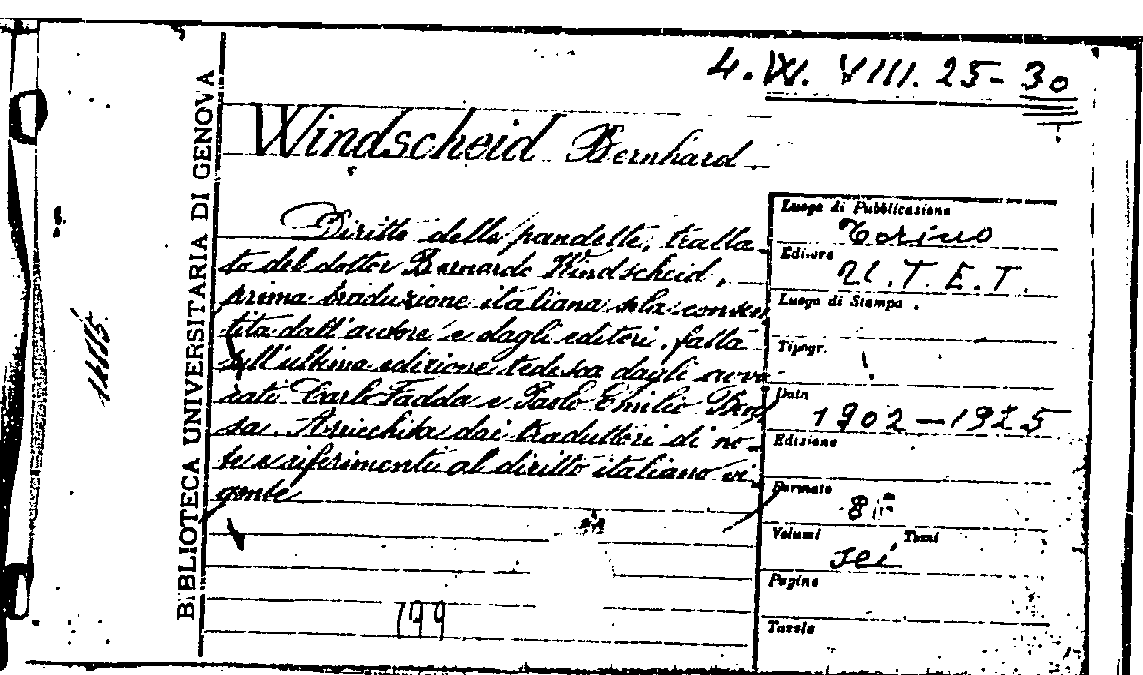 4. W. VIII. 25-30
BIBLIOTECA UNIVERSITARIA DI GENOVA
Windscheid Bernhard.
Diritto delle pandette, tratta-
to del dottor Bernardo Windscheid,
prima traduzione italiana sola consen
tita dall'autore e dagli editori, fatta
sull'ultima edizione tedesca dagli avvo-
cati Carlo Fadda e Paolo Emilio Ben
sa. Arricchita dai traduttori di no-
te e riferimenti al diritto italiano vi-
gente
199
Luogo di Pubblicazione
Torino
Editore
U.T.E.T.
Luogo di Stampa
Tipogr.
Data
1902-1925
Edizione
Formato
8°
Volumi Tomi
sei
Pagine
Tavole